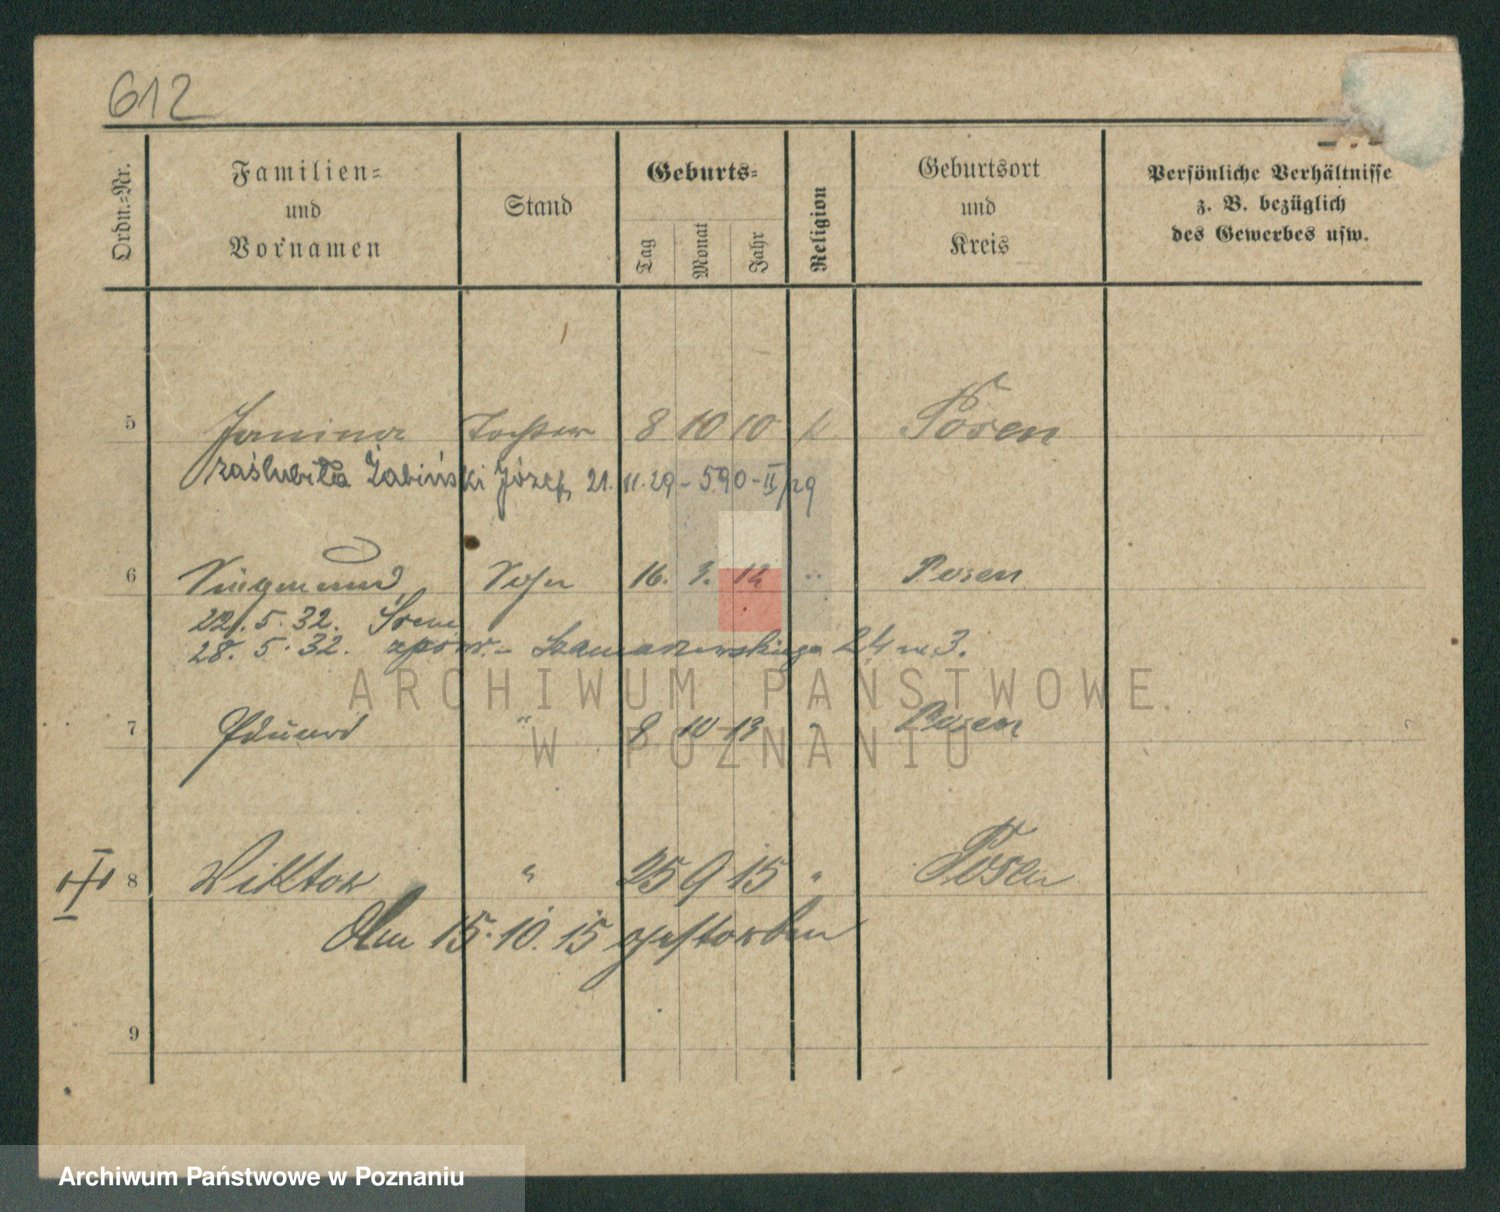 612
Ordn.-Nr.
Familien- und Vornamen
Stand
Geburts-
Tag
Monat
Jahr
Religion
Geburtsort und Kreis
Persönliche Verhältnisse z. B. bezüglich des Gewerbes usw.
5 Janina Tochter 8 10 10 k. Posen
zaślubiła Żabiński Józef, 21.11.29 - 590-II/29
6 Siegmund Sohn 16. 3. 12 " Posen
22.5.32. Śrem
28.5.32. 24 m 3.
7 Eduard " 8 10 13 " Posen
8 Wiktor " 25 9 15 " Posen
Am 15.10.15 gestorben
9
ARCHIWUM PAŃSTWOWE
W POZNANIU
Archiwum Państwowe w Poznaniu